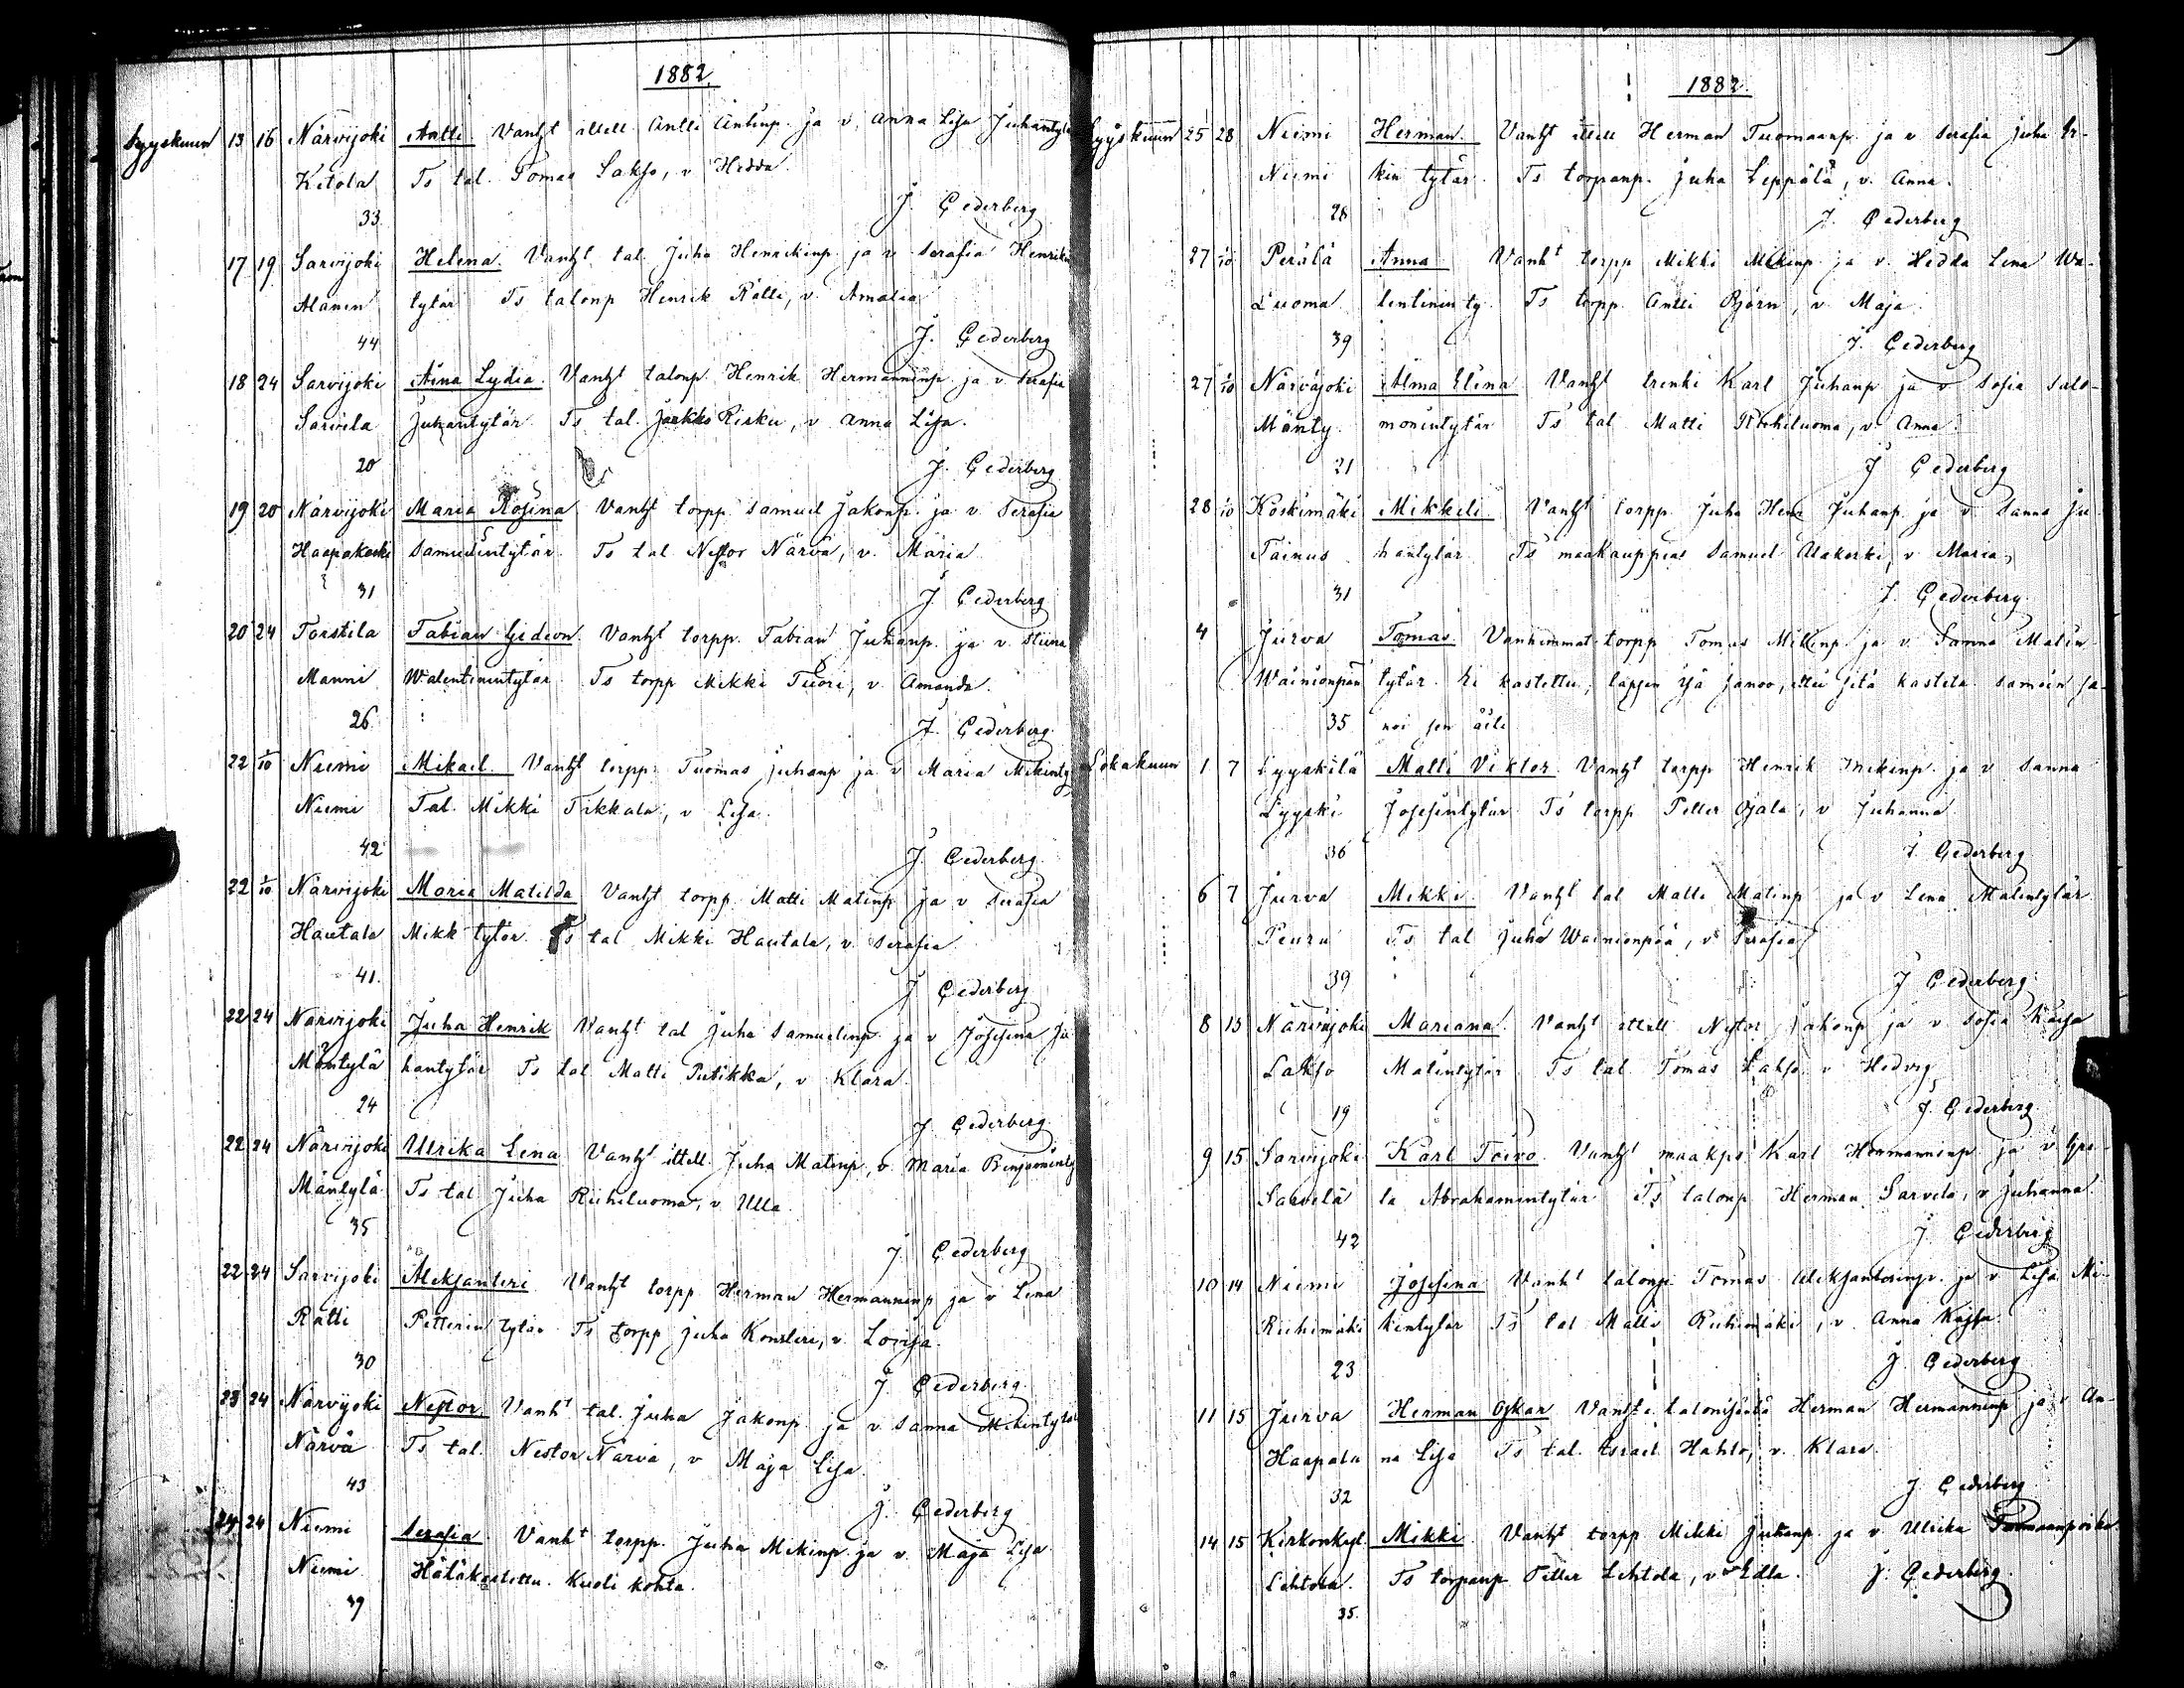 1882.
Syyskuun 13 16 Närvijoki Antti. Vanht ittell. Antti Antinp. ja v. Anna Lisa Juhantytär
Kitola Ts tal. Tomas Lakso, v. Hedda.
33. J. Cederberg
17 19 Sarvijoki Helena. Vanht tal. Juha Henrikinp. ja v. Serafia Henrikin
Alanen tytär Ts talonp Henrik Rätti, v. Amalia
44 J. Cederberg
18 24 Sarvijoki Aina Lydia. Vanht talonp. Henrik Hermanninp. ja v. Serafia
Sarvela Juhantytär. Ts tal. Jaakko Risku, v. Anna Lisa.
20 J. Cederberg
19 20 Närvijoki Maria Rosina Vanht torpp. Samuel Jakonp. ja v. Serafia
Haapakoski Samuelintytär. Ts tal. Nestor Närvä, v. Maria
31 J. Cederberg
20 24 Torstila Fabian Gideon. Vanht torpp. Fabian Juhanp. ja v. Stiina
Manni Walentinintytär Ts torpp Mikki Tuori, v. Amanda.
26 J. Cederberg.
22 1/10 Niemi Mikael. Vanht torpp. Tuomas Juhanp ja v Maria Mikinty
Niemi Tal. Mikki Tikkala, v Lisa.
42 J. Cederberg.
22 1/10 Närvijoki Maria Matilda Vanht torpp. Matti Matinp ja v Serafia
Hautala Mikk tytär. Ts tal Mikki Hautala, v. Serafia
41. J Cederberg
22 24 Närvijoki Juha Henrik Vanht tal Juha Samuelinp. ja v Josefina Ju
Mäntylä hantytär Ts tal Matti Putikka, v Klara.
24 J Cederberg.
22 24 Närvijoki Ulrika Lena Vanht ittell. Juha Matinp, v. Maria Benjaminty
Mäntylä Ts tal Juha Riihiluoma, v. Ulla.
35 J. Cederberg
22 24 Sarvijoki Aleksanteri Vanht torpp Herman Hermanninp ja v Lena
Rätti Petterin tytär Ts torpp Juha Konsteri, v. Lovisa.
30 J Cederberg.
23 24 Närvijoki Nestor Vanht tal. Juha Jakonp ja v Sanna Mikintytär
Närvä Ts tal. Nestor Närvä, v Maja Lisa.
43 J. Cederberg
24 24 Niemi Serafia. Vanht torpp. Juha Mikinp. ja v. Maja Lisa.
Niemi Hätäkastettu. Kuoli kohta.
39
1882.
Syyskuun 25 28 Niemi Herman. Vanht ittell Herman Tuomaanp. ja v Serafia Juha Er-
Niemi kin tytär. Ts torpanp. Juha Leppälä, v. Anna.
28 J. Cederberg
27 1/10 Perälä Anna Vanht torpp Mikki Mikinp ja v. Hedda Lena Wa-
Luoma lentinin ty. Ts torpp. Antti Björn, v. Maja
39 J. Cederberg
27 1/10 Närvijoki Alma Elina Vanht trenki Karl Juhanp ja v Sofia Salo-
Mänty monintytär Ts tal Matti Riihiluoma, v. Anna.
21 J Cederberg
28 1/10 Koskimäki Mikkeli Vanht torpp. Juha Henr Juhanp ja v Sanna Ju
Tainus hantytär. Ts maakauppias Samuel Alakoski, v. Maria
31 J. Cederberg.
4 Jurva Tomas. Vanhimmat torpp Tomas Mikinp ja v. Sanna Matin
Wainionpää tytär. Ei kastettu, lapsen isä sanoo, ettei sitä kasteta. Samoin sa-
35 noi sen äiti
Lokakuun 1 7 Lyyskilä Matti Viktor. Vanht torpp Henrik Mikinp. ja v Sanna
Lyyski Josefintytär Ts torpp Petter Ojala, v Juhanna
36 J Cederberg
6 7 Jurva Mikki Vanht tal Matti Matinp ja v Lena Matintytär
Peura Ts tal Juha Wainionpää, v Serafia
39 J Cederberg
8 15 Närvijoki Mariana. Vanht ittell Nestor Jakonp ja v. Sofia Kaisa
Lakso Matintytär Ts tal. Tomas Lakso v Hedvig
19 J. Cederberg.
9 15 Sarvijoki Karl Toivo Vanht maakps Karl Hermanninp ja v
Sarvela la Abrahamintytär Ts talonp Herman Sarvela, v. Juhanna.
42 J Cederberg
10 14 Niemi Josefina Vanht talonp Tomas Aleksanterinp. ja v Lisa Mi-
Riihimäki kintytär Ts tal Matti Riihimäki, v. Anna Kajsa.
23 J. Cederberg
11 15 Jurva Herman Oskar Vanht talonisäntä Herman Hermanninp ja v An-
Haapala na Lisa Ts tal. Israel Hahto, v. Klara.
32 J Cederberg
14 15 Kirkonkyl. Mikki Vanht torpp Mikki Juhanp. ja v Ulrika
Lehtola. Ts torpanp Petter Lehtola, v Edla. J. Cederberg.
35.